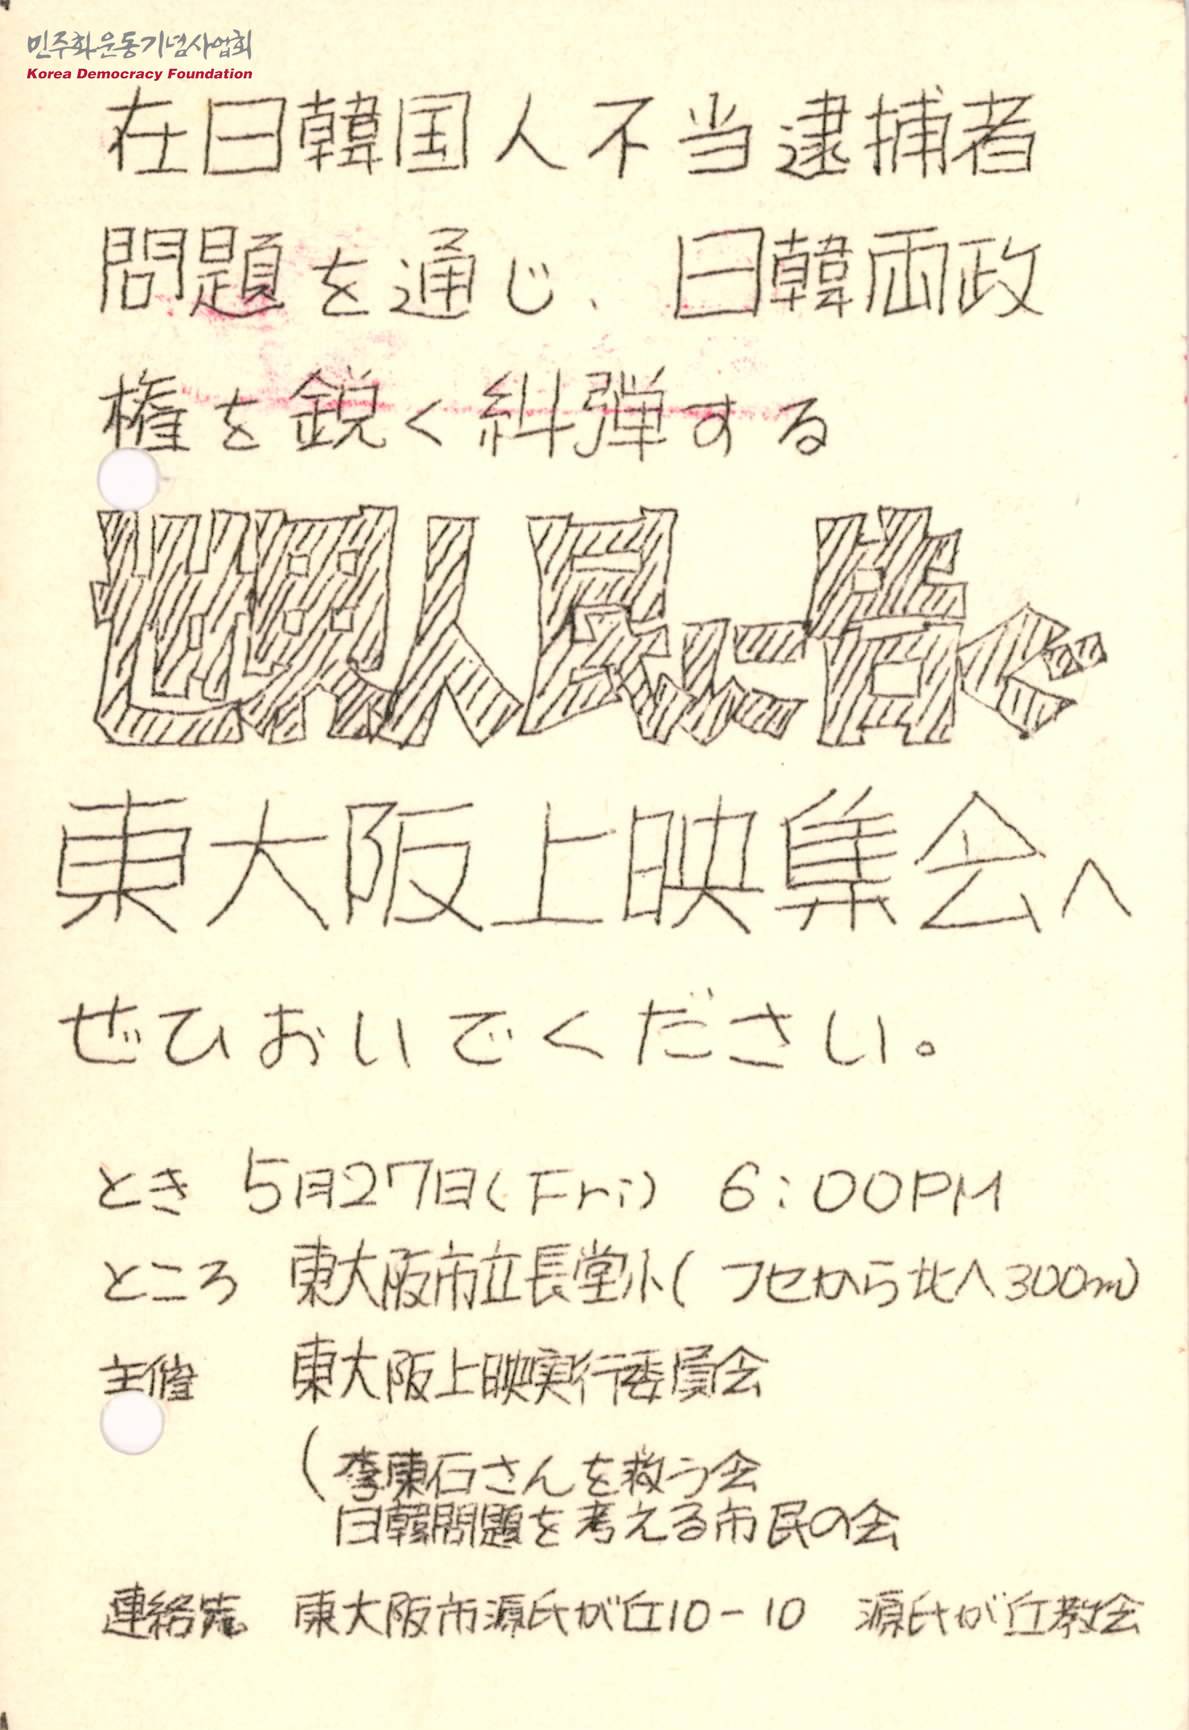 민주화운동기념사업회
Korea Democracy Foundation
在日韓国人不当逮捕者
問題を通じ、日韓両政
権を鋭く糾弾する
世界人民に告ぐ
東大阪上映集会へ
ぜひおいでください。
とき 5月27日(Fri) 6:00PM
ところ 東大阪市立長堂小(フセから北へ300m)
主催 東大阪上映実行委員会
(李東石さんを救う会
日韓問題を考える市民の会
連絡先 東大阪市源氏が丘10-10 源氏が丘教会